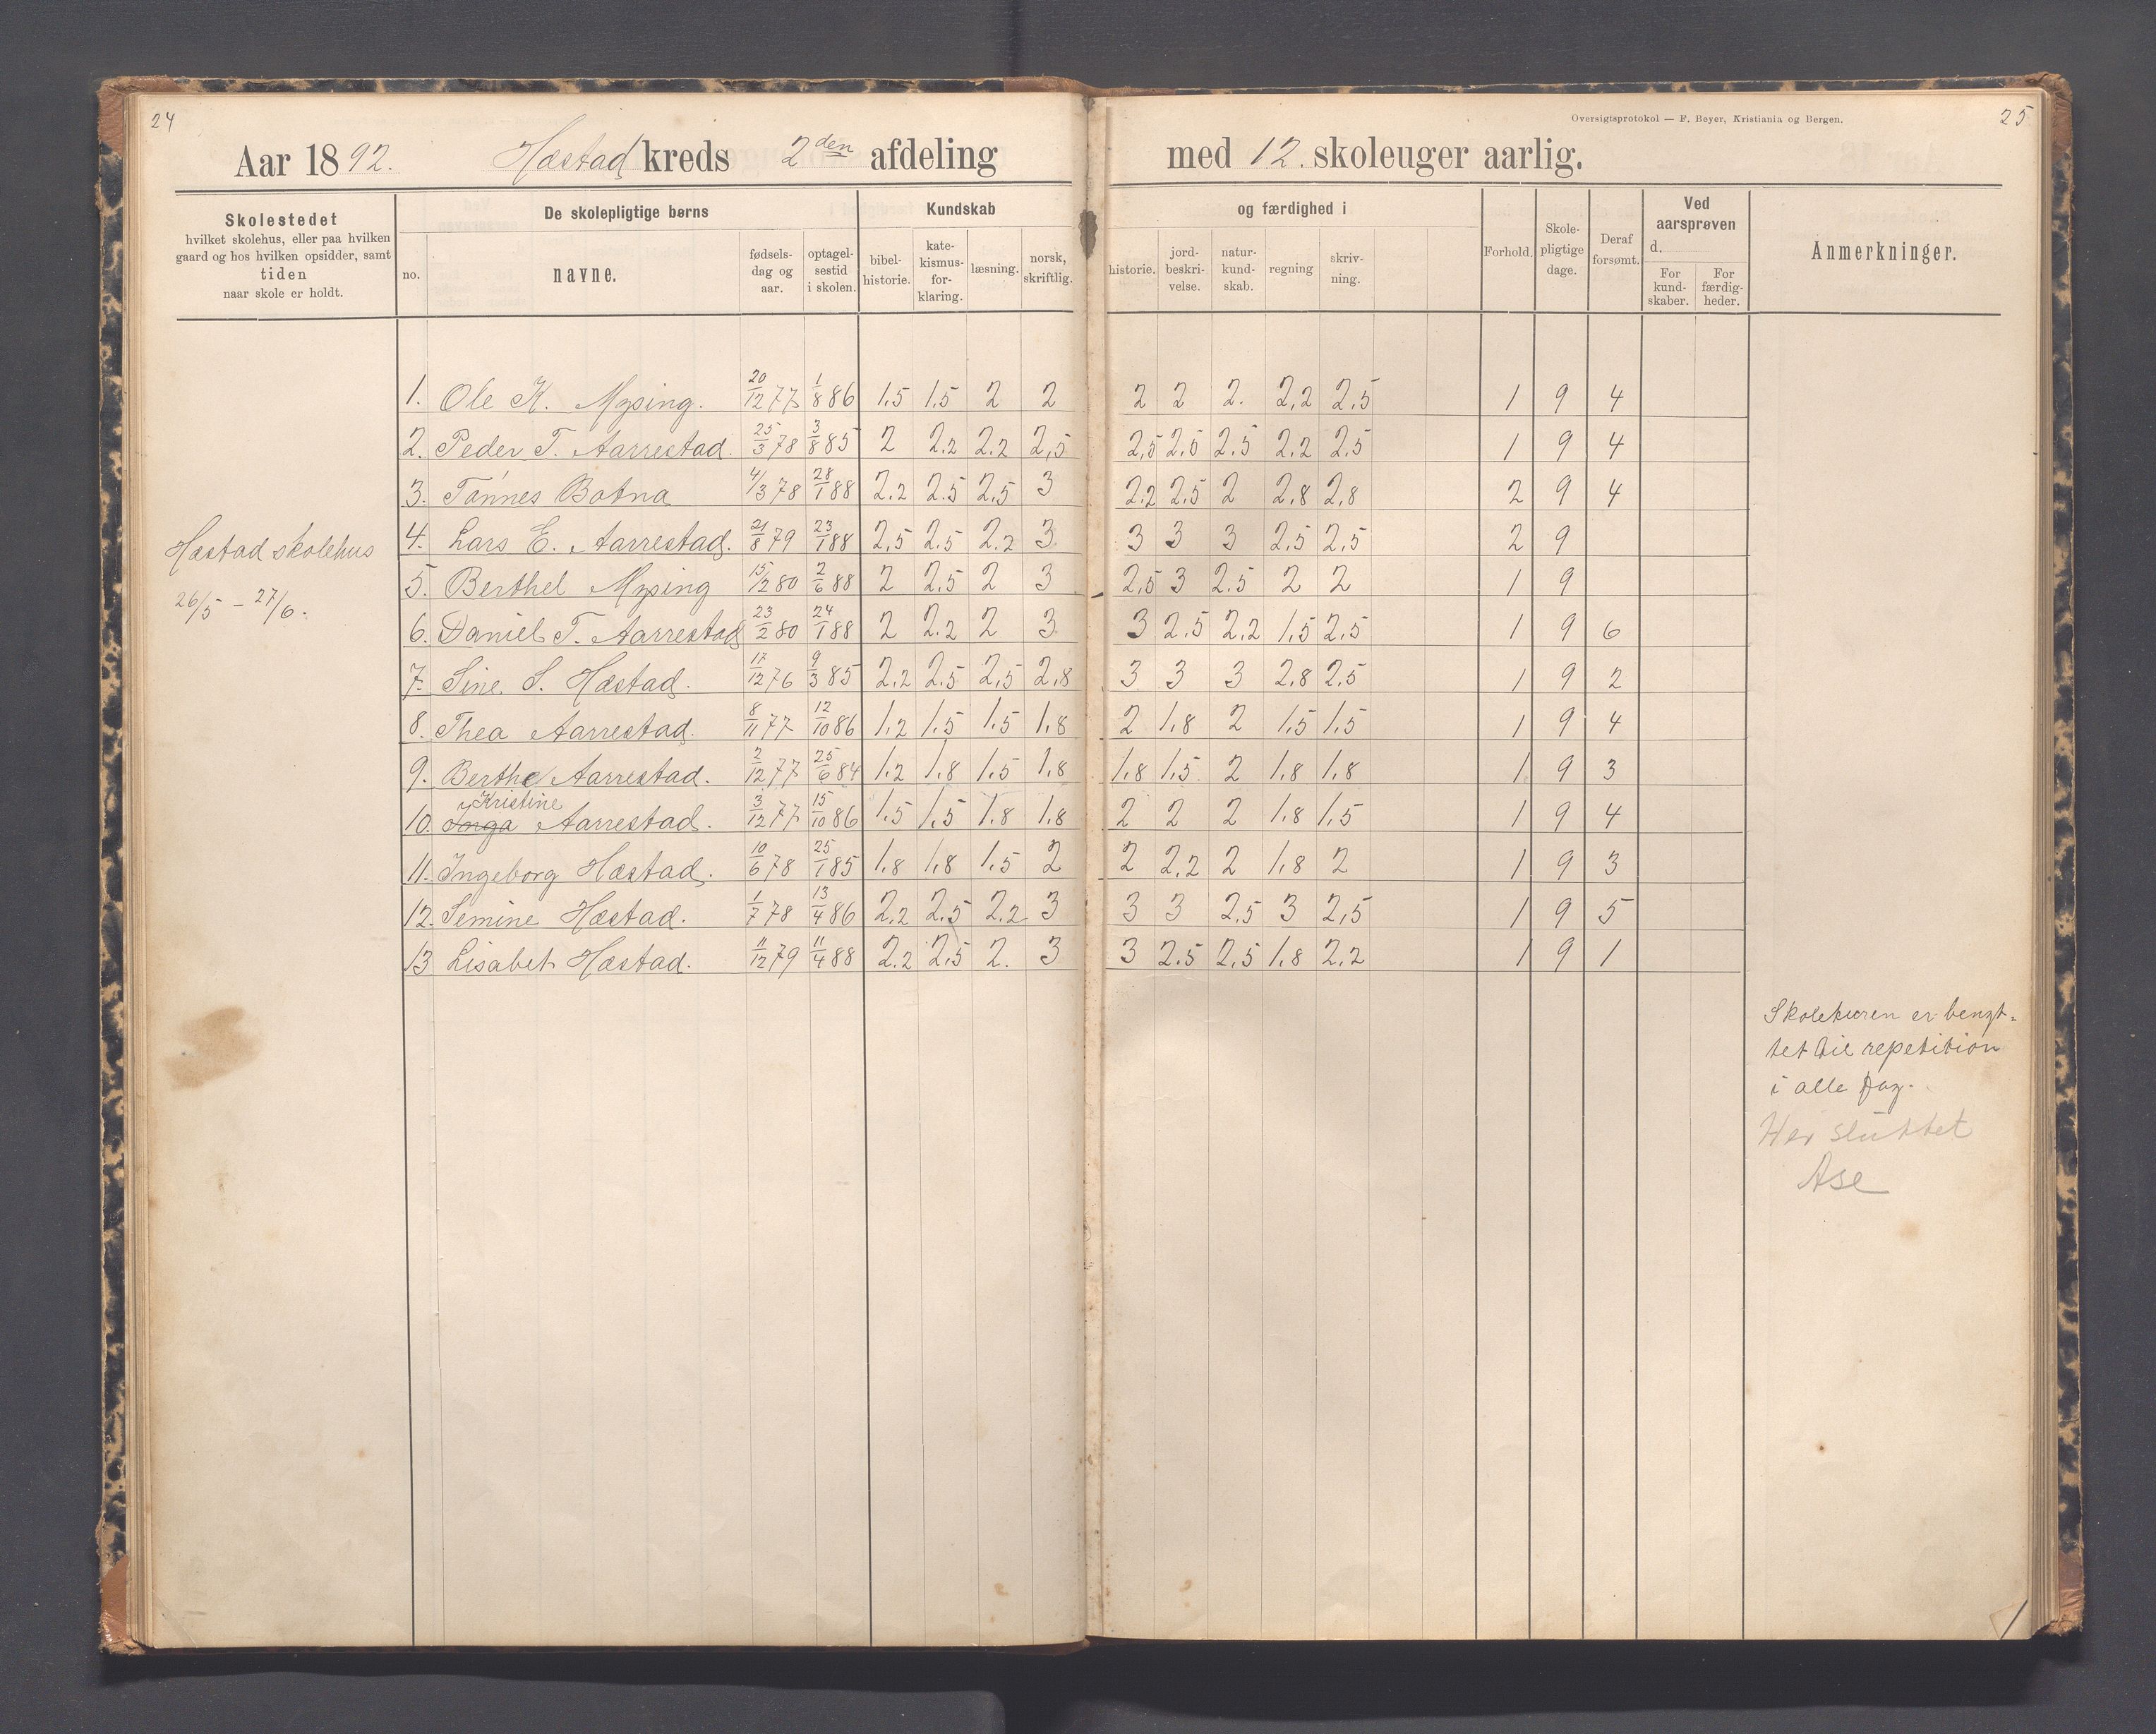 24
Aar 1892. Hæstad kreds 2den afdeling
Oversigtsprotokol — F. Beyer, Kristiania og Bergen.
25
med 12. skoleuger aarlig.
Skolestedet
hvilket skolehus, eller paa hvilken
gaard og hos hvilken opsidder, samt
tiden
naar skole er holdt.
De skolepligtige børns
no.
navne.
fødsels-
dag og
aar.
optagel-
sestid
i skolen.
Kundskab
bibel-
historie.
kate-
kismus-
for-
klaring.
læsning.
norsk,
skriftlig.
og færdighed i
historie.
jord-
beskri-
velse.
natur-
kund-
skab.
regning
skriv-
ning.
Forhold.
Skole-
pligtige
dage.
Deraf
forsømt.
Ved
aarsprøven
d.
For
kund-
skaber.
For
færdig-
heder.
Anmerkninger.
1. Ole K. Mysing. 20/12 77 1/8 86 1,5 1,5 2 2 2 2 2. 2,2 2,5 1 9 4
2. Peder T. Aarrestad. 25/3 78 3/8 85 2 2.2 2.2 2,5 2,5 2,5 2.5 2.2 2.5 1 9 4
3. Tønnes Botna 4/3 78 28/1 88 2.2 2.5 2,5 3 2.2 2,5 2 2,8 2,8 2 9 4
4. Lars E. Aarrestad. 21/8 79 23/1 88 2,5 2.5 2.2 3 3 3 3 2,5 2,5 2 9
5. Berthel Mysing 15/12 80 2/6 88 2 2,5 2 3 2,5 3 2.5 2 2 1 9
6. Daniel T. Aarrestad 23/2 80 24/1 88 2 2.2 2 3 3 2.5 2,2 1,5 2,5 1 9 6
7. Sine S. Hæstad. 17/12 76 9/3 85 2,2 2.5 2,5 2,8 3 3 3 2,8 2,5 1 9 2
8. Thea Aarrestad. 8/11 77 12/10 86 1,2 1,5 1,5 1,8 2 1,8 2 1,5 1,5 1 9 4
9. Berthe Aarrestad. 2/12 77 25/6 84 1,2 1,8 1,5 1,8 1,8 1,5 2 1,8 1,8 1 9 3
Kristine
10. Aarrestad. 3/12 77 15/10 86 1,5 1,5 1,8 1,8 2 2 2 1,8 1,5 1 9 4
11. Ingeborg Hæstad. 10/6 78 25/1 85 1,8 1,8 1,5 2 2 2,2 2 1,8 2 1 9 3
12. Semine Hæstad. 1/7 78 13/4 86 2,2 2,5 2,2 3 3 3 2,5 3 2,5 1 9 5
13 Lisabet Hæstad. 11/12 79 11/4 88 2.2 2,5 2. 3 3 2.5 2,5 1,8 2,2 1 9 1
Hæstad skolehus
26/5 – 27/6.
Skoleturen er benyt-
tet til repetition
i alle fag.
Her sluttet
Ase